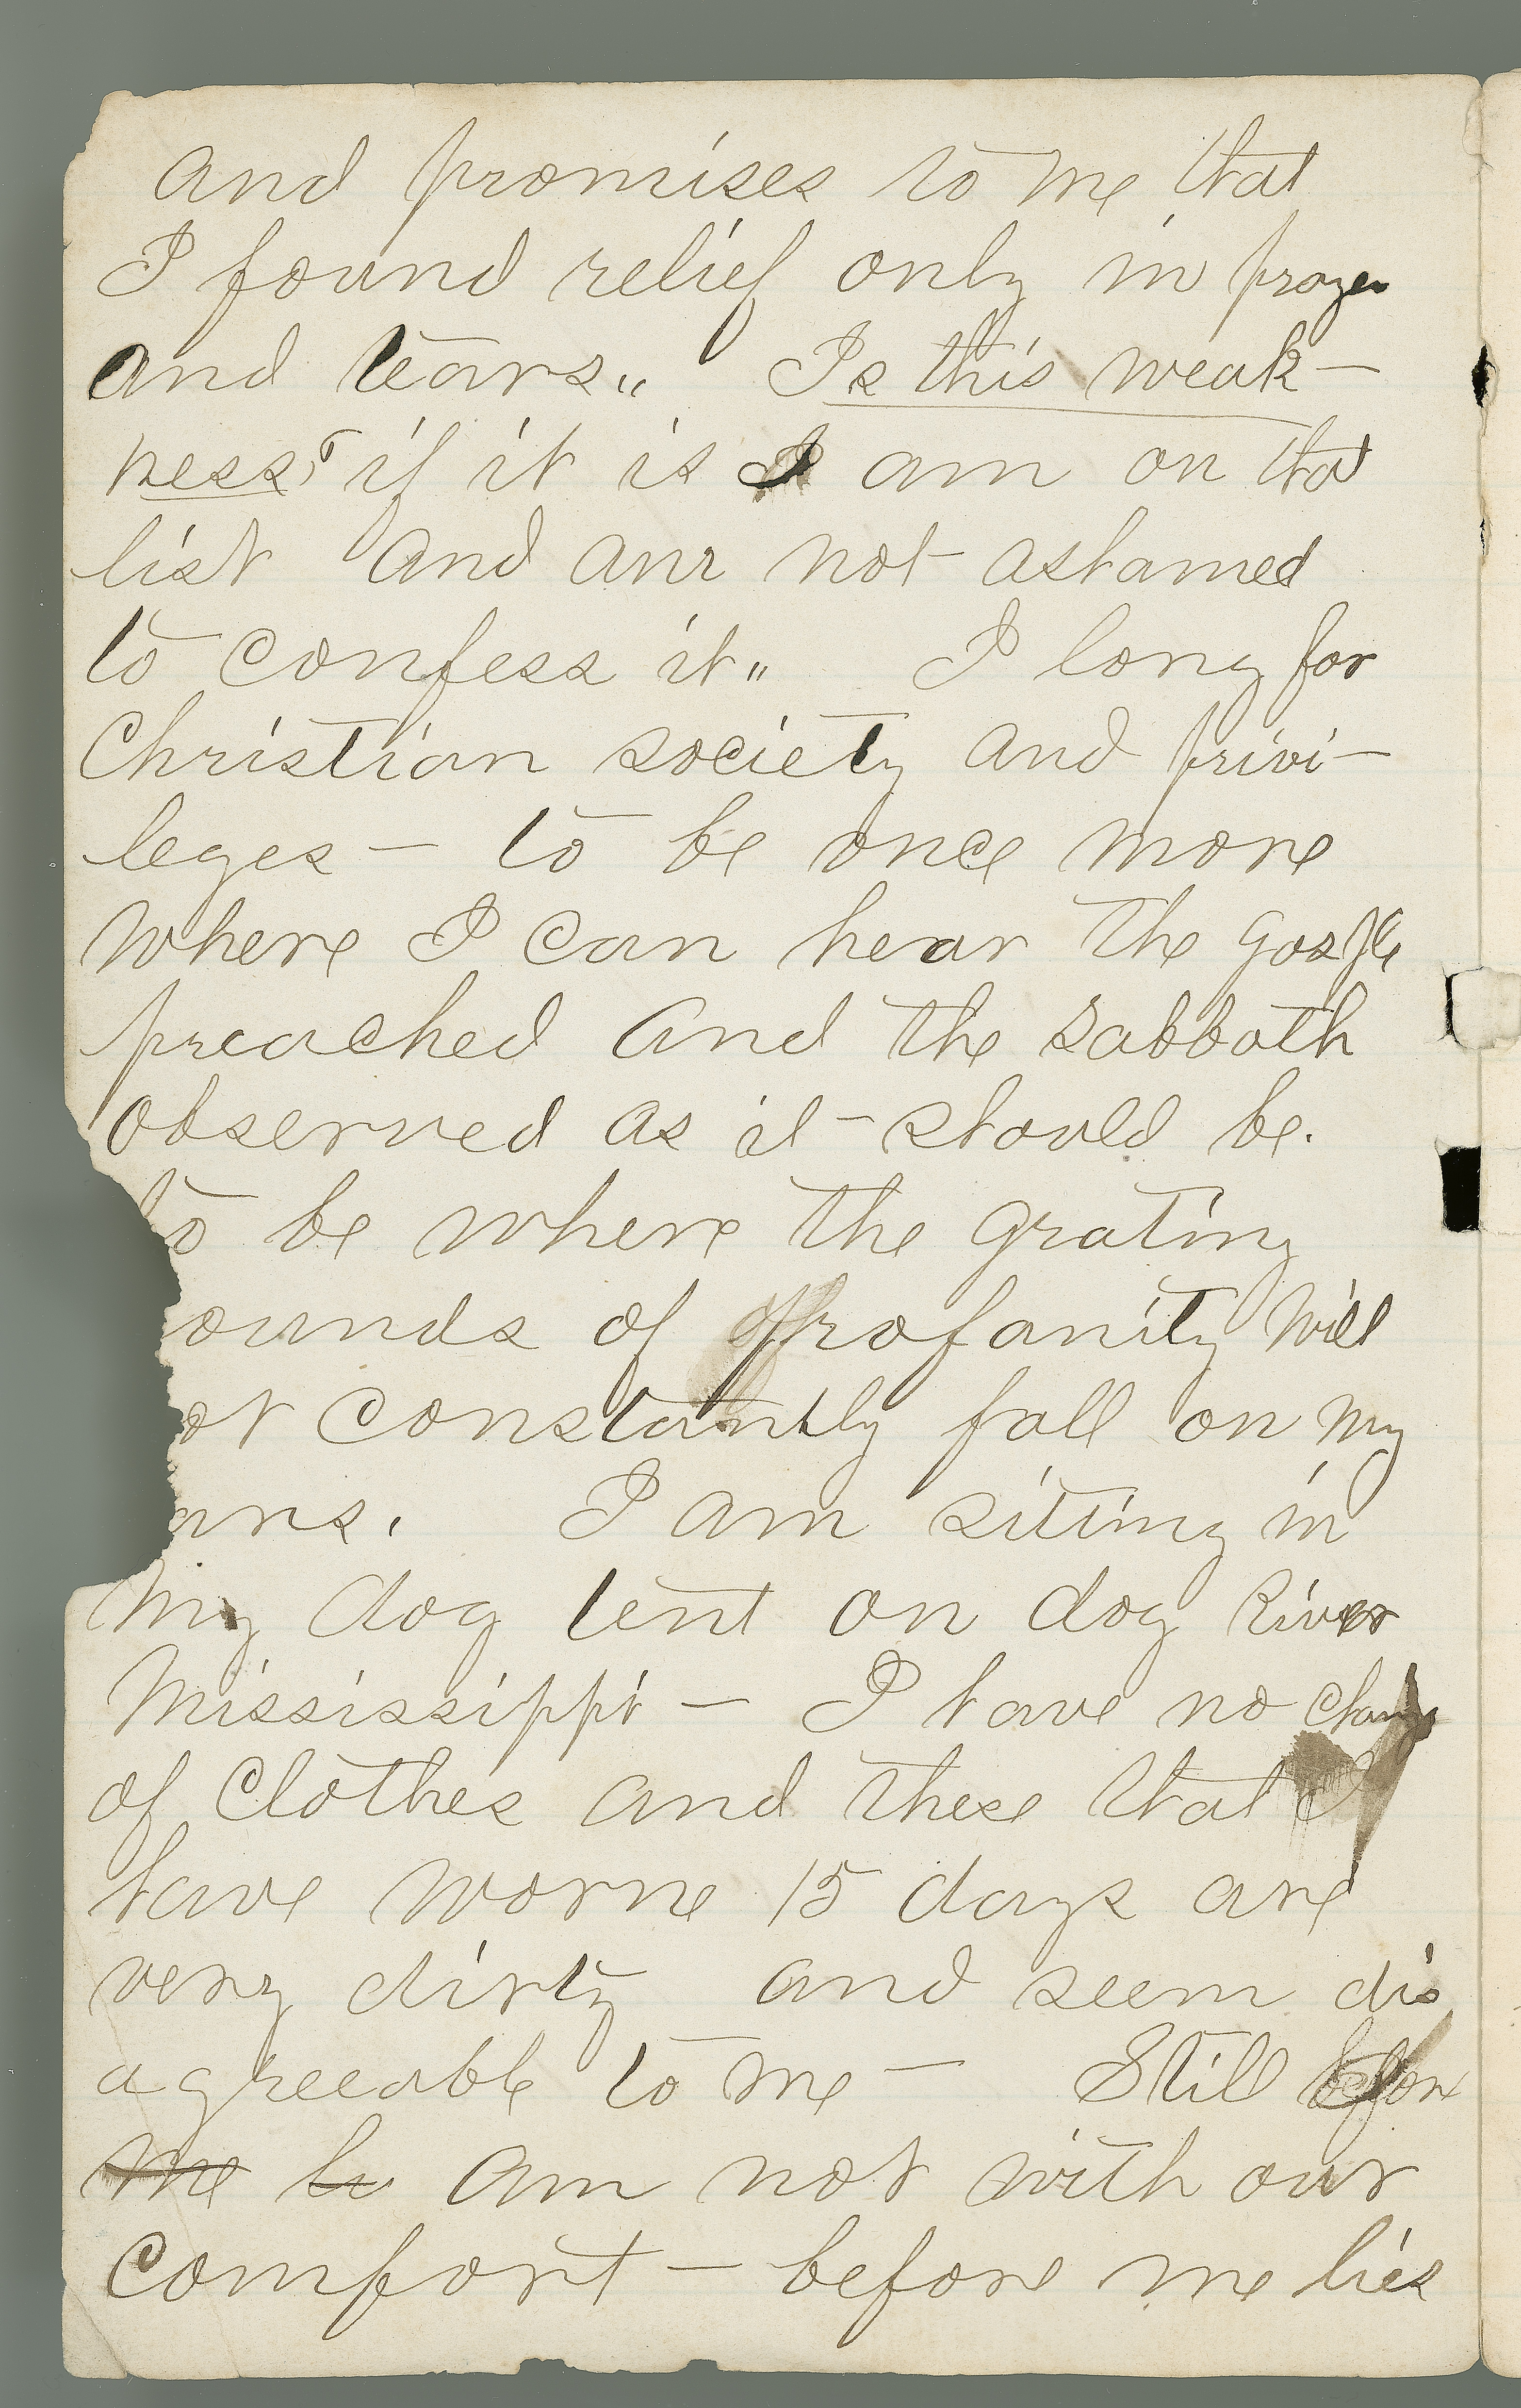 and promises to me that
I found relief only in prayer
and tears„ Is this weak-
ness? if it is I am on that
list and am not ashamed
to confess it„ I long for
Christian society and privi-
leges - to be once more
where I can hear the gosple
preached and the Sabboth
observed as it should be.
to be where the grating
ounds of profanity will
ot constantly fall on my
ars. I am siting in
my dog tent on dog River
Mississippi - I have no change
of clothes and these that I
have worne 15 days are
very dirty and seem dis
agreeable to me - Still before
me lies am not with our
comfort - before me lies